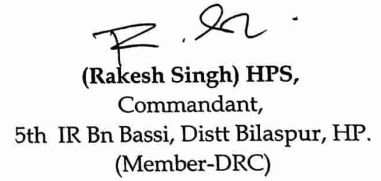 (Rakesh Singh) HPS,
Commandant,
5th IR Bn Bassi, Distt Bilaspur, HP.
(Member-DRC)